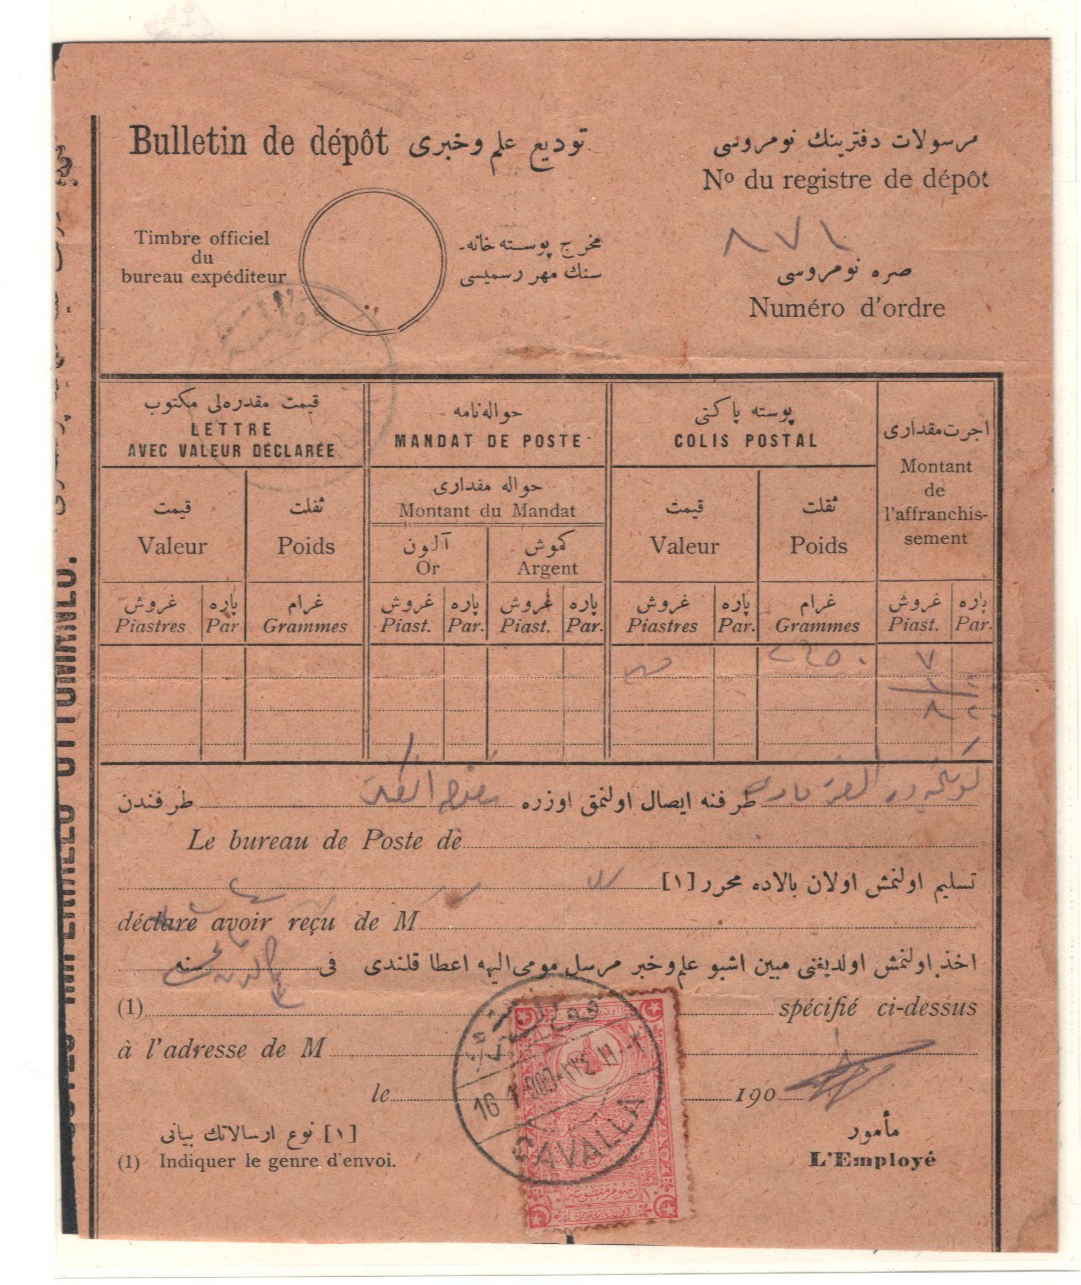 Bulletin de dépôt توديع علم وخبرى
مرسولات دفترينك نومروسى
Nº du registre de dépôt
٨٧١
صره نومروسى
Numéro d'ordre
Timbre officiel
du
bureau expéditeur
مخرج پوسته خانه‌
سنك مهر رسميسى
قيمت مقدره‌لى مكتوب
LETTRE
AVEC VALEUR DÉCLARÉE
حواله‌نامه
MANDAT DE POSTE
پوسته پاكتى
COLIS POSTAL
اجرت مقدارى
Montant
de
l'affranchis-
sement
حواله مقدارى
Montant du Mandat
قيمت
Valeur
ثقلت
Poids
آلتون
Or
كموش
Argent
قيمت
Valeur
ثقلت
Poids
غروش پاره غرام غروش پاره غروش پاره غروش پاره غرام غروش پاره
Piastres Par Grammes Piast. Par. Piast. Par. Piastres Par. Grammes Piast. Par.
٧
٨
طرفنه ايصال اولنمق اوزره طرفندن
Le bureau de Poste de
تسليم اولنمش اولان بالاده محرر [١]
déclare avoir reçu de M
اخذ اولنمش اولديغنى مبين اشبو علم وخبر مرسل مومى اليه اعطا قلندى فى سنه
(1) spécifié ci-dessus
à l'adresse de M
le 190
16 1 909
CAVALLA
[١] نوع ارسالاتك بيانى
(1) Indiquer le genre d'envoi.
مأمور
L'Employé